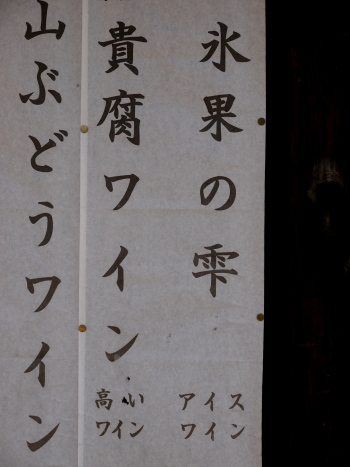 氷果の雫
アイス
ワイン
貴腐ワイン
高い
ワイン
山ぶどうワイン